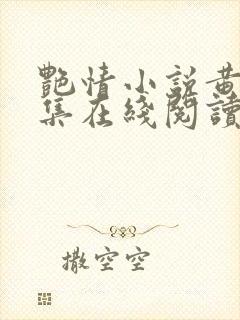 艷情小說黃
集在綫閱讀
撒空空